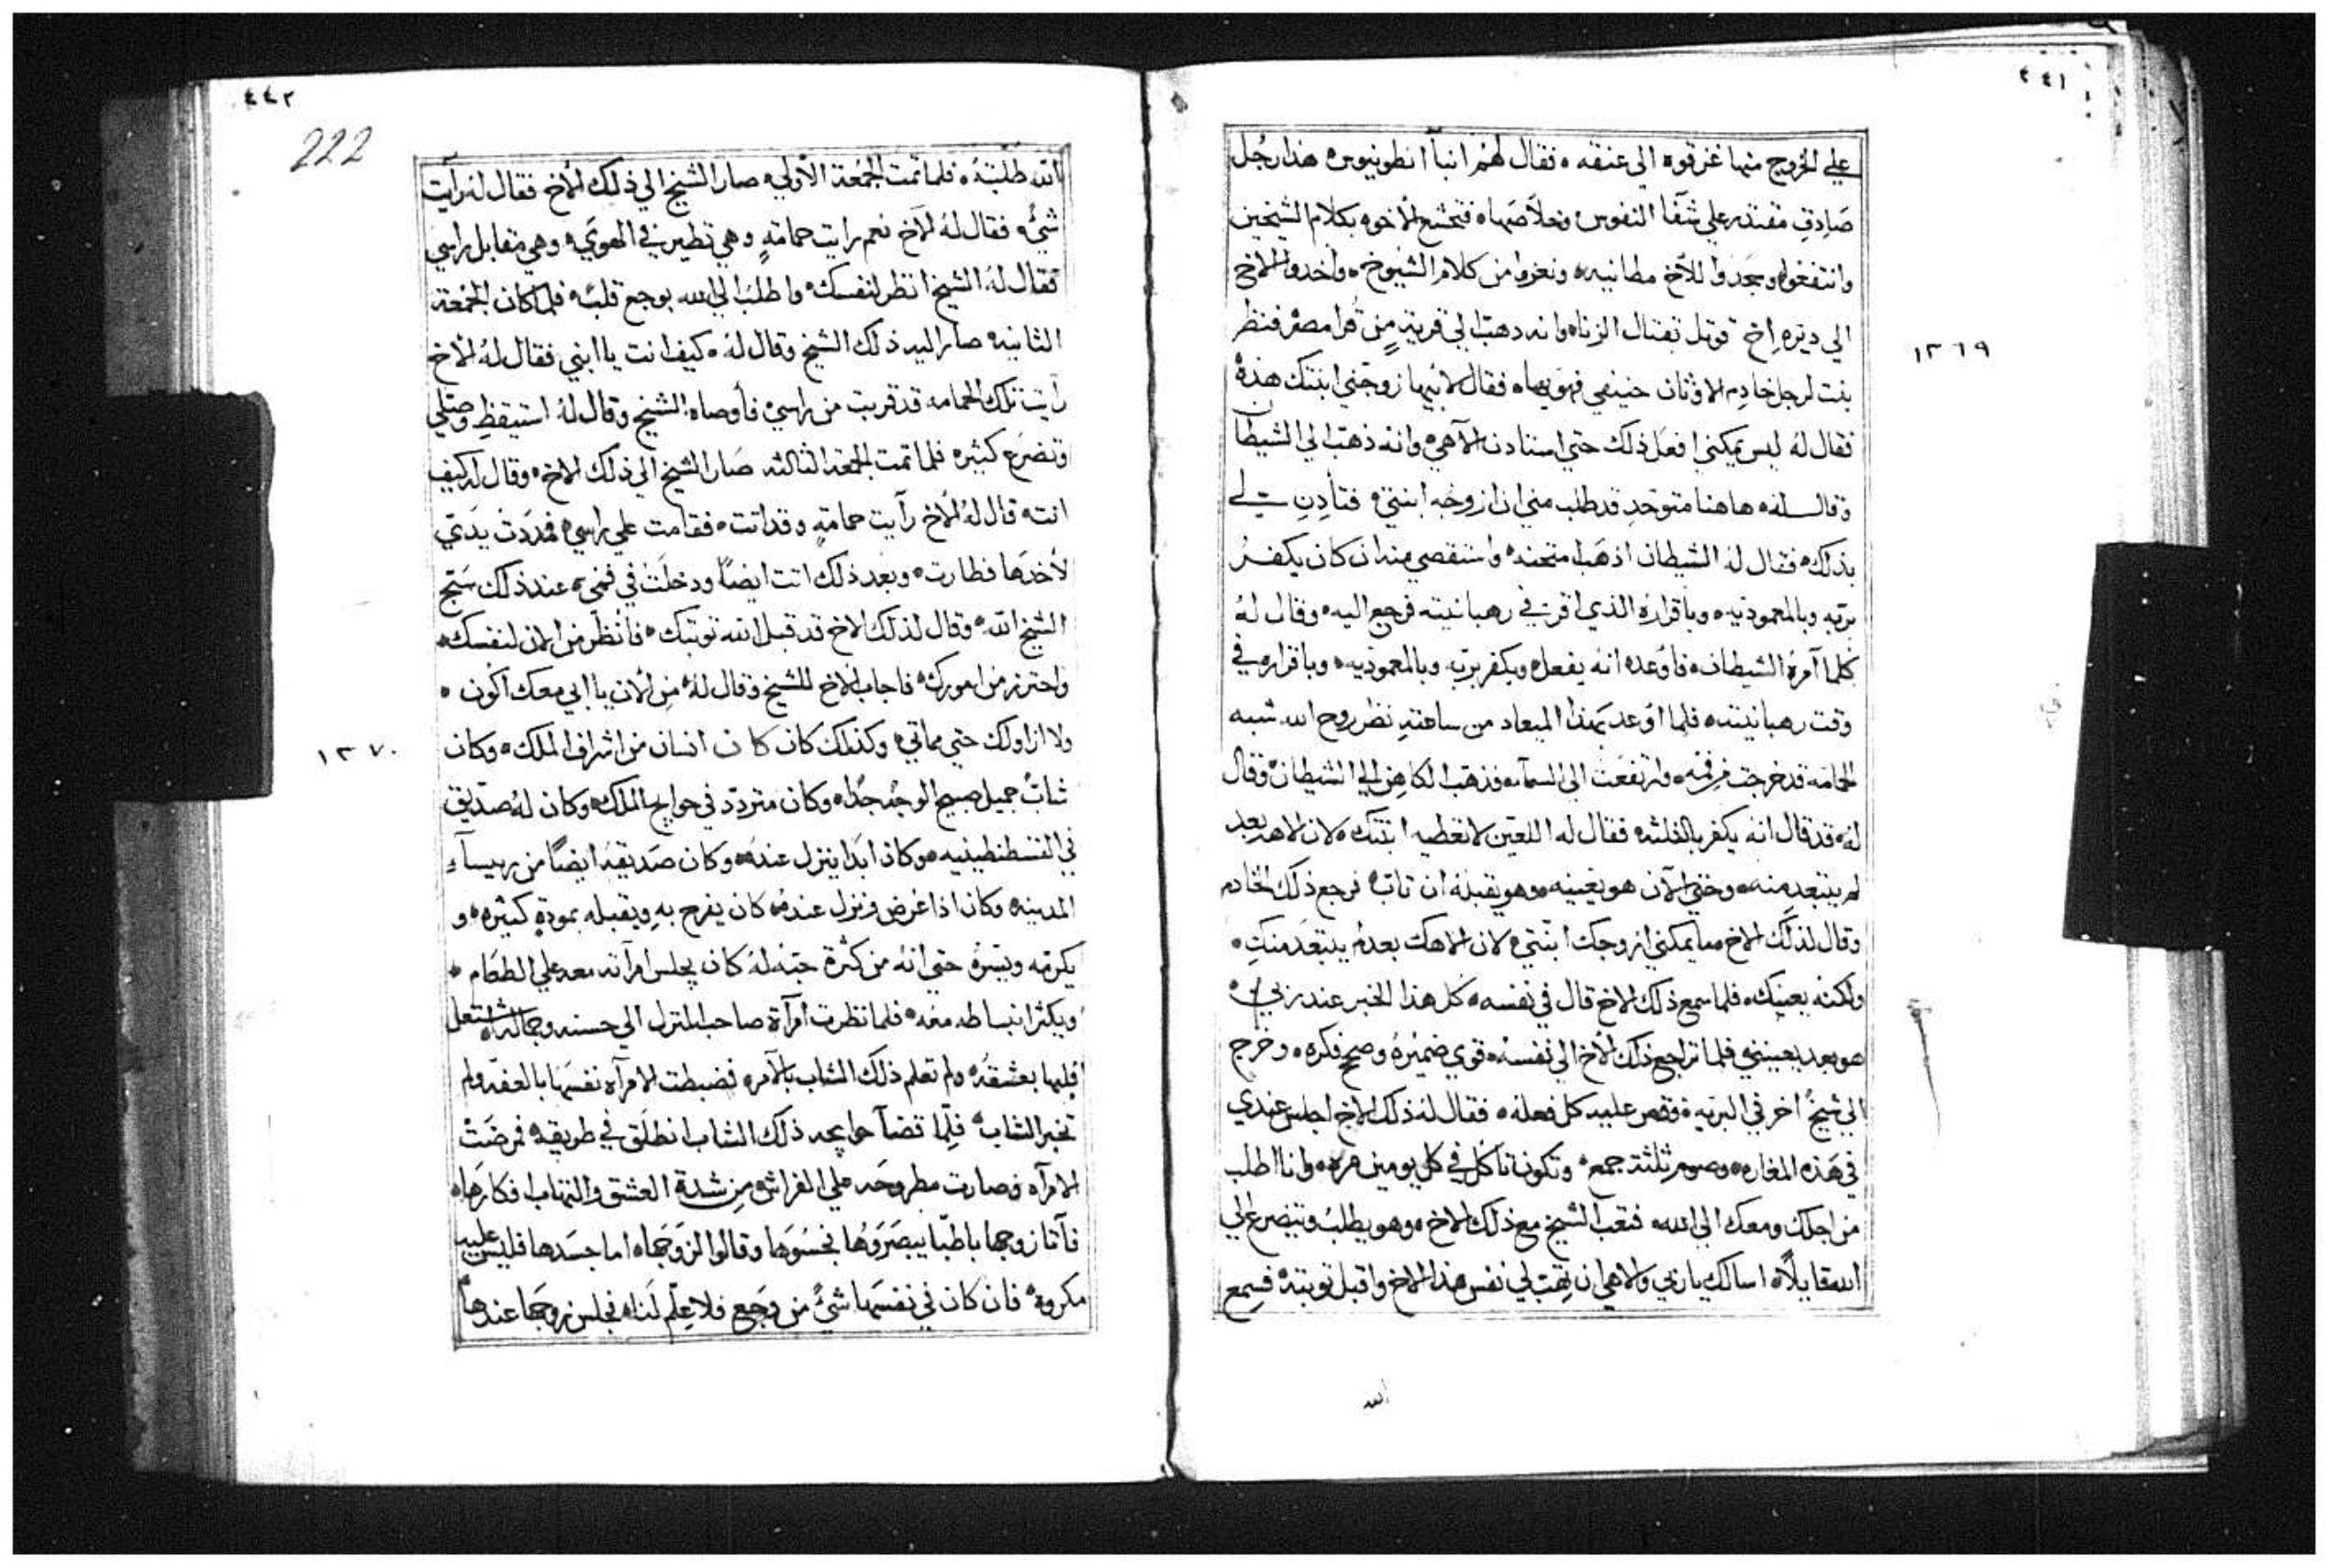 ٤٤١
علي الخروج منها غرقوه الي عنقه ه فقال لهم انبآ انطونيوس هذا رجُل
صَادِق مقتدر علي شفآ النفوس وخلاصَها ه فتخشع الاخوه بكلام الشيخين
وانتفعوا وسجدوا للاخ مطانيه ه وتعزوا من كلام الشيوخ ه واخدوا الاخ
الي ديره اخ قوتل بقتال الزناه وانه دهب الي قريةٍ من قرا مصر فنظر
١٣٦٩
بنت لرجل خادِم الاوثان حنيفي فهويها ه فقال لابيها زوجني ابنتك هذه
فقال له ليس يمكني افعل ذلك حتي استادن الآهي ه وانه ذهب الي الشيطان
وقال له ه هاهنا متوحدٍ قد طلب مني ان ازوجه ابنتي ه فتأدِن لي
بذلك ه فقال له الشيطان اذهب امتحنه ه واستقصي منه ان كان يكفرُ
بربه وبالمعموديه ه وباقراره الذي اقر في رهبانيته فرجع اليه ه وقال لهُ
كلما آمرهُ الشيطان ه فاوعده انه يفعل ه ويكفر بربه وبالمعموديه ه وباقراره في
وقت رهبانيته ه فلما اوعد بهذا الميعاد من ساعتهِ نظر روح الله شبه
الحمَامَه قد خرجت من فمه ه وارتفعَت الي السمآ ه فذهب الكاهن الي الشيطان ه وقال
لهُ ه قد قال انه يكفر بالثلثه فقال له اللعين لا تعطيه ابنتك ه لان الاهه بعد
لم يبتعد منه ه وحتي الآن هو يعينه ه وهو يقبله ان تاب ه فرجع ذلك الخادم
وقال لذلك الاخ ما يمكني ازوجك ابنتي ه لان الاهك بعدهُ يبتعَد منك ه
ولكنه يعينك ه فلما سمع ذلك الاخ قال في نفسه ه كل هذا الخير عند ربي ه
هو بعد يعينني فلما تراجع ذلك الاخ الي نفسه ه قوي ضميرهُ وصح فكره ه وخرج
الي شيخٌ اخر في البريه ه وقص عليه كل فعله ه فقال له ذلك الاخ اجلس عندي
في هذه المغاره ه وصوم ثلثة جمع ه وتكون تاكل في كل يومين مره ه وانا اطلب
من اجلك ومعك الي الله ه فتعب الشيخ مع ذلك الاخ ه وهو يطلبُ ويتضرع الي
الله قايلاً ه اسالك يا ربي والاهي ان تهب لي نفس هذا الاخ واقبل توبته ه فسِمع
الله
٤٤٢
222
الله طلبته ه فلما تمت الجُمعة الاولي ه صار الشيخ الي ذلك الاخ فقال له رآيت
شئ ه فقال لهُ الاخ نعم رايت حمامةٍ وهي تطير في الهوي ه وهي مقابل راسي
فقال لهُ الشيخ انظر لنفسك ه واطلب الي الله بوجع قلب ه فلما كان الجُمعة
الثانيه ه صار اليه ذلك الشيخ وقال لهُ ه كيف انت يا ابني فقال لهُ الاخ
رآيت تلك الحمامه قد قربت من راسي ه فأوصاه الشيخ وقال لهُ استيقظ وصلي
وتضرع كثيره فلما تمت الجمعه الثالثه صَار الشيخ الي ذلك الاخ ه وقال له كيف
انت ه قال لهُ الاخ رآيت حمامةٍ وقد اتت ه فقامت علي راسي ه فمددت يدَي
لاخدها فطارت ه وبعد ذلك اتت ايضاً ودخلَت في فمي ه عند ذلك سَبح
الشيخ الله ه وقال لذلك الاخ قد قبل الله توبتك ه فأنظر من الان لنفسك ه
واحترز من امورك ه فاجاب الاخ للشيخ وقال لهُ ه من الان يا ابي معك اكون ه
ولا ازاولك حتي مماتي ه وكذلك كان كان انسان من اشراف الملك ه وكان
١٣٧٠
شابٌ جميل صبيح الوجه جدًا ه وكان متردد في حوايج الملك ه وكان لهُ صديق
في القسطنطينيه ه وكان ابدا ينزل عنده ه وكان صَديقه ايضًا من ريسآء
المدينه ه وكان اذا عرض ونزل عنده ه كان يفرح بهِ ويقبله بمودةٍ كثيره ه و
يكرمه ويسِرهُ حتي انهُ من كثرة حبه لهُ كان يجلس امرآته معه علي الطعَام ه
ويكثر انبساطه معه ه فلما نظرت امرآة صاحب المنزل الي حسنه وجماله ه اشتعل
قلبها بعشقه ه ولم تعلم ذلك الشاب بالآمر ه فضبطت الامرآه نفسَها بالعفه ولم
تخبر الشاب ه فلِما قضآ حوايجه ذلك الشاب انطلق في طريقه ه فمرضَت
الامرآه وصارت مطروحَه علي الفراش ه من شدة العشق والتهاب افكارها ه
فآتا زوجها باطبآ يبصَروُها فجسُوَها وقالوا لزوجَها ه اما جسَدها فليس عليه
مكروه ه فان كان في نفسَها شئ من وجَع فلا علم لَنا ه فجلس زوجَها عندها